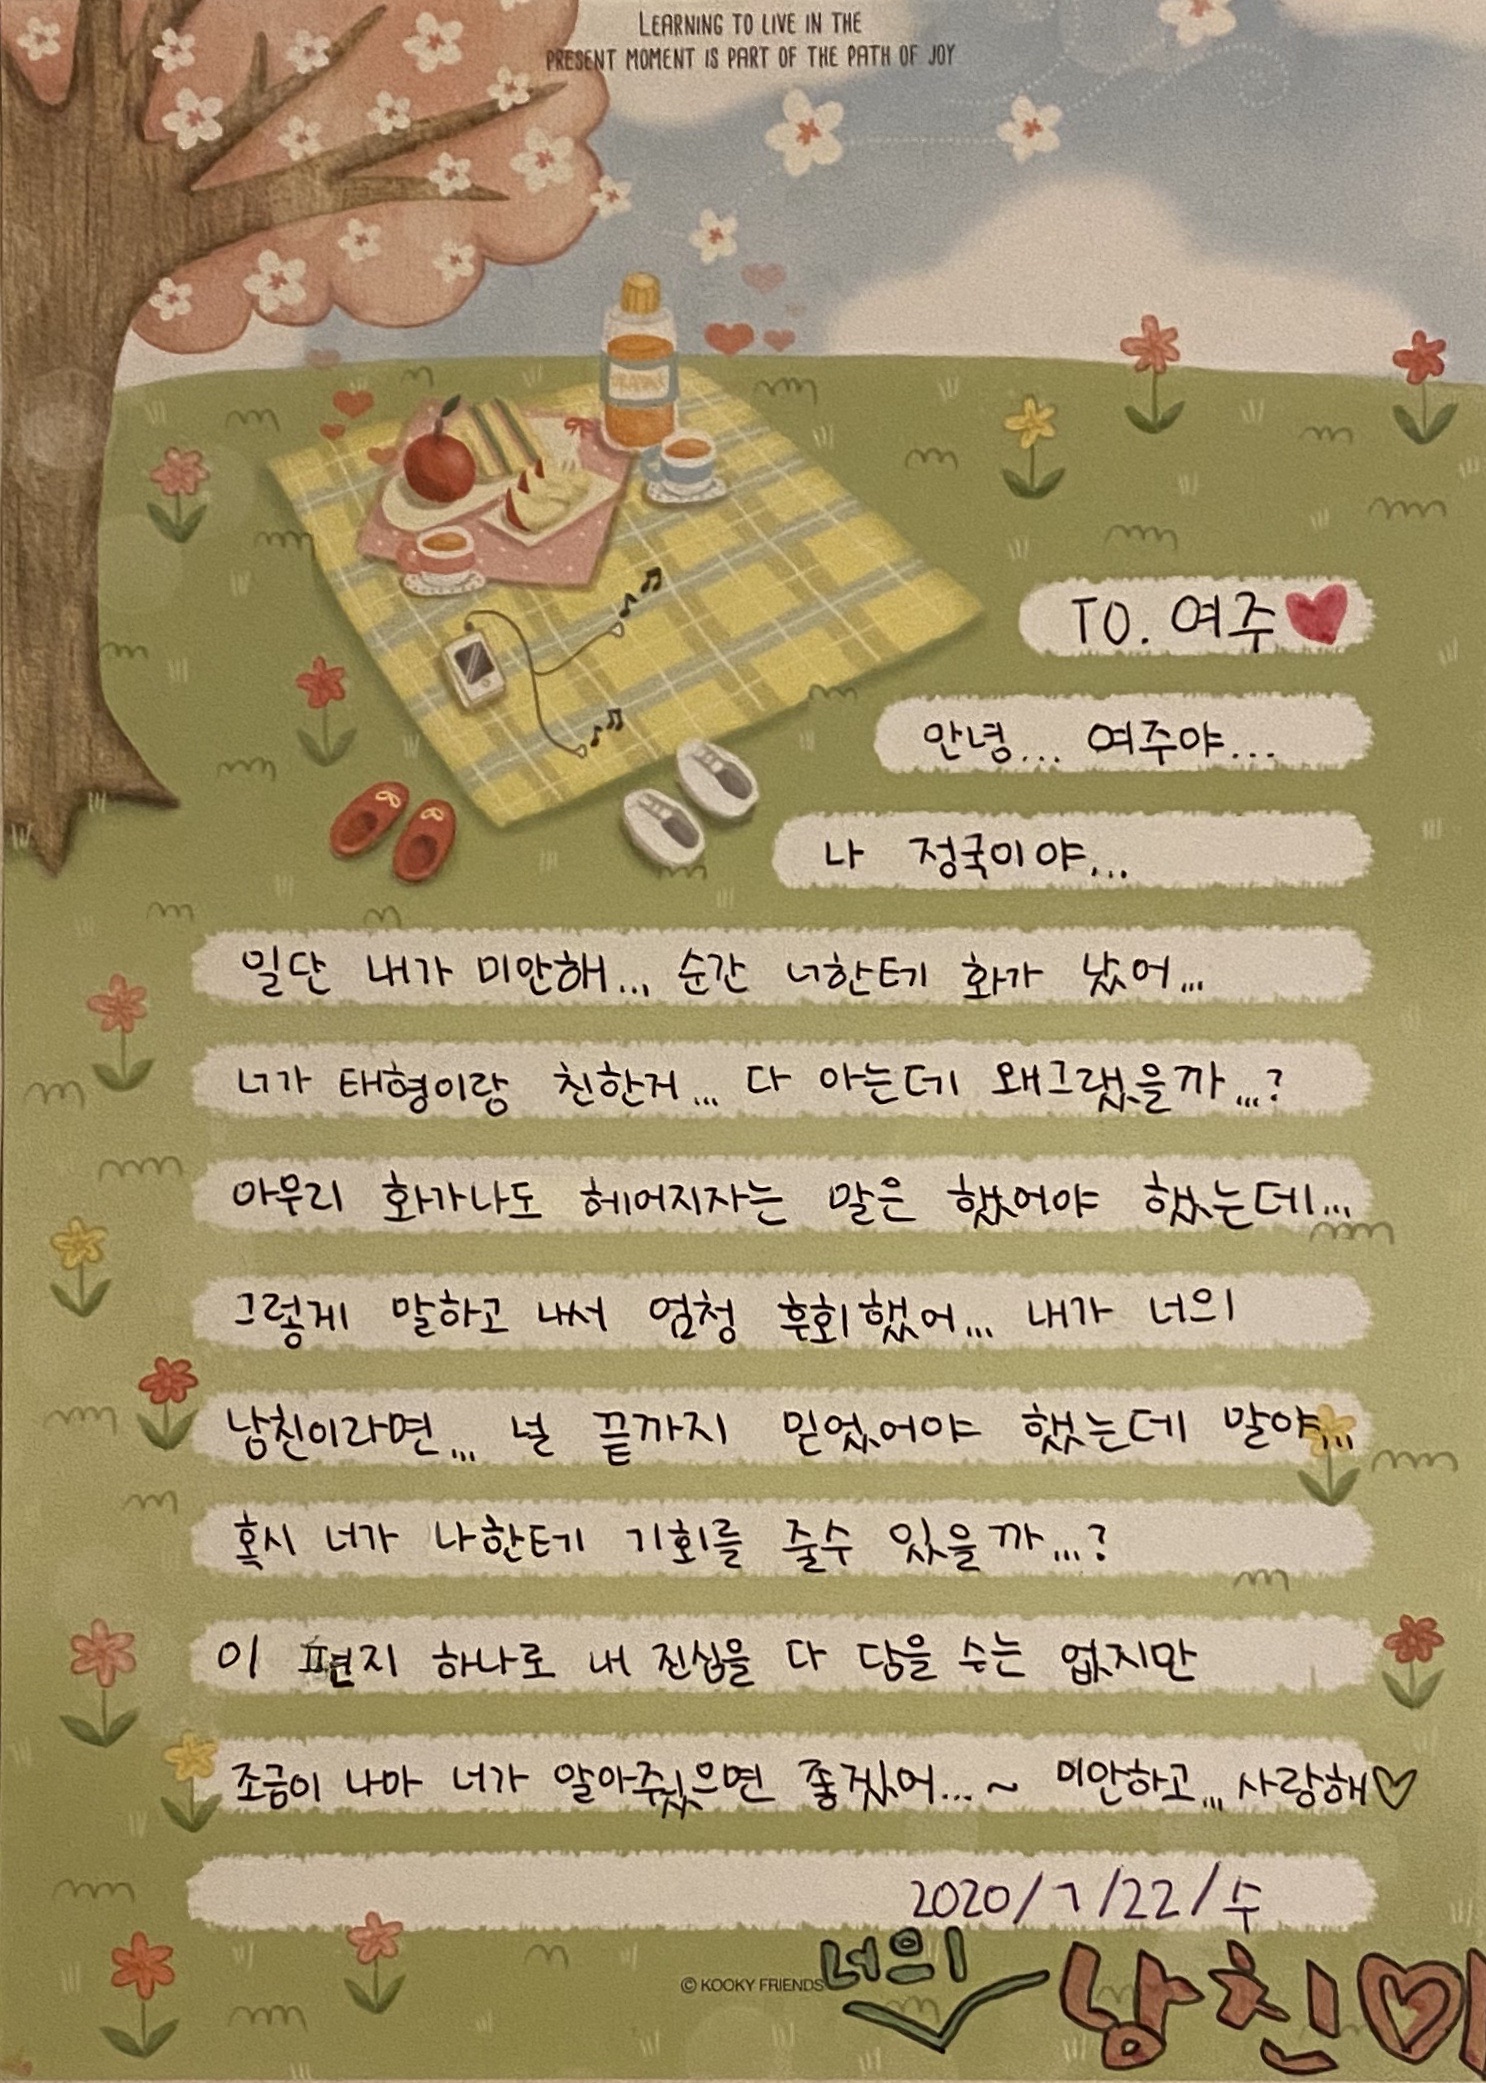 LEARNING TO LIVE IN THE
PRESENT MOMENT IS PART OF THE PATH OF JOY
TO. 여주♥
안녕... 여주야...
나 정국이야...
일단 내가 미안해... 순간 너한테 화가 났어...
너가 태형이랑 친한거... 다 아는데 왜그랬을까...?
아무리 화가나도 헤어지자는 말은 했었어야 했는데...
그렇게 말하고 나서 엄청 후회했어... 내가 너의
남친이라면... 널 끝까지 믿었어야 했는데 말야...
혹시 너가 나한테 기회를 줄수 있을까...?
이 편지 하나로 내 진심을 다 담을 수는 없지만
조금이 나마 너가 알아줬으면 좋겠어...~ 미안하고... 사랑해♡
2020/7/22/수
© KOOKY FRIENDS
너의 남친이